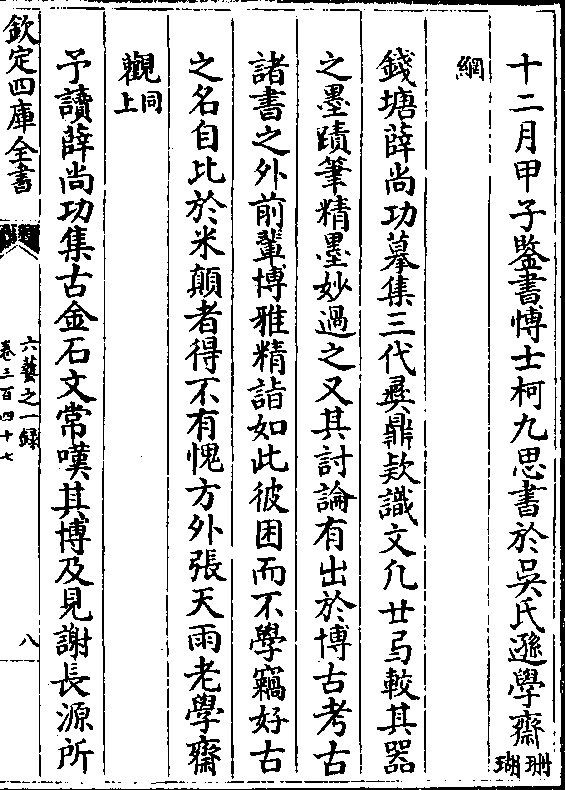 十二月甲子鑒書博士柯九思書於吳氏遜學齋珊瑚
網
錢塘薛尚功摹集三代彛鼎欵識文凡廿弓較其器
之墨蹟筆精墨妙過之又其討論有出於博古考古
諸書之外前輩博雅精詣如此彼困而不學竊好古
之名自比於米顛者得不有愧方外張天雨老學齋
觀同上
予讀薛尚功集古金石文常嘆其博及見謝長源所
欽定四庫全書
六藝之一録
卷三百四十七
八